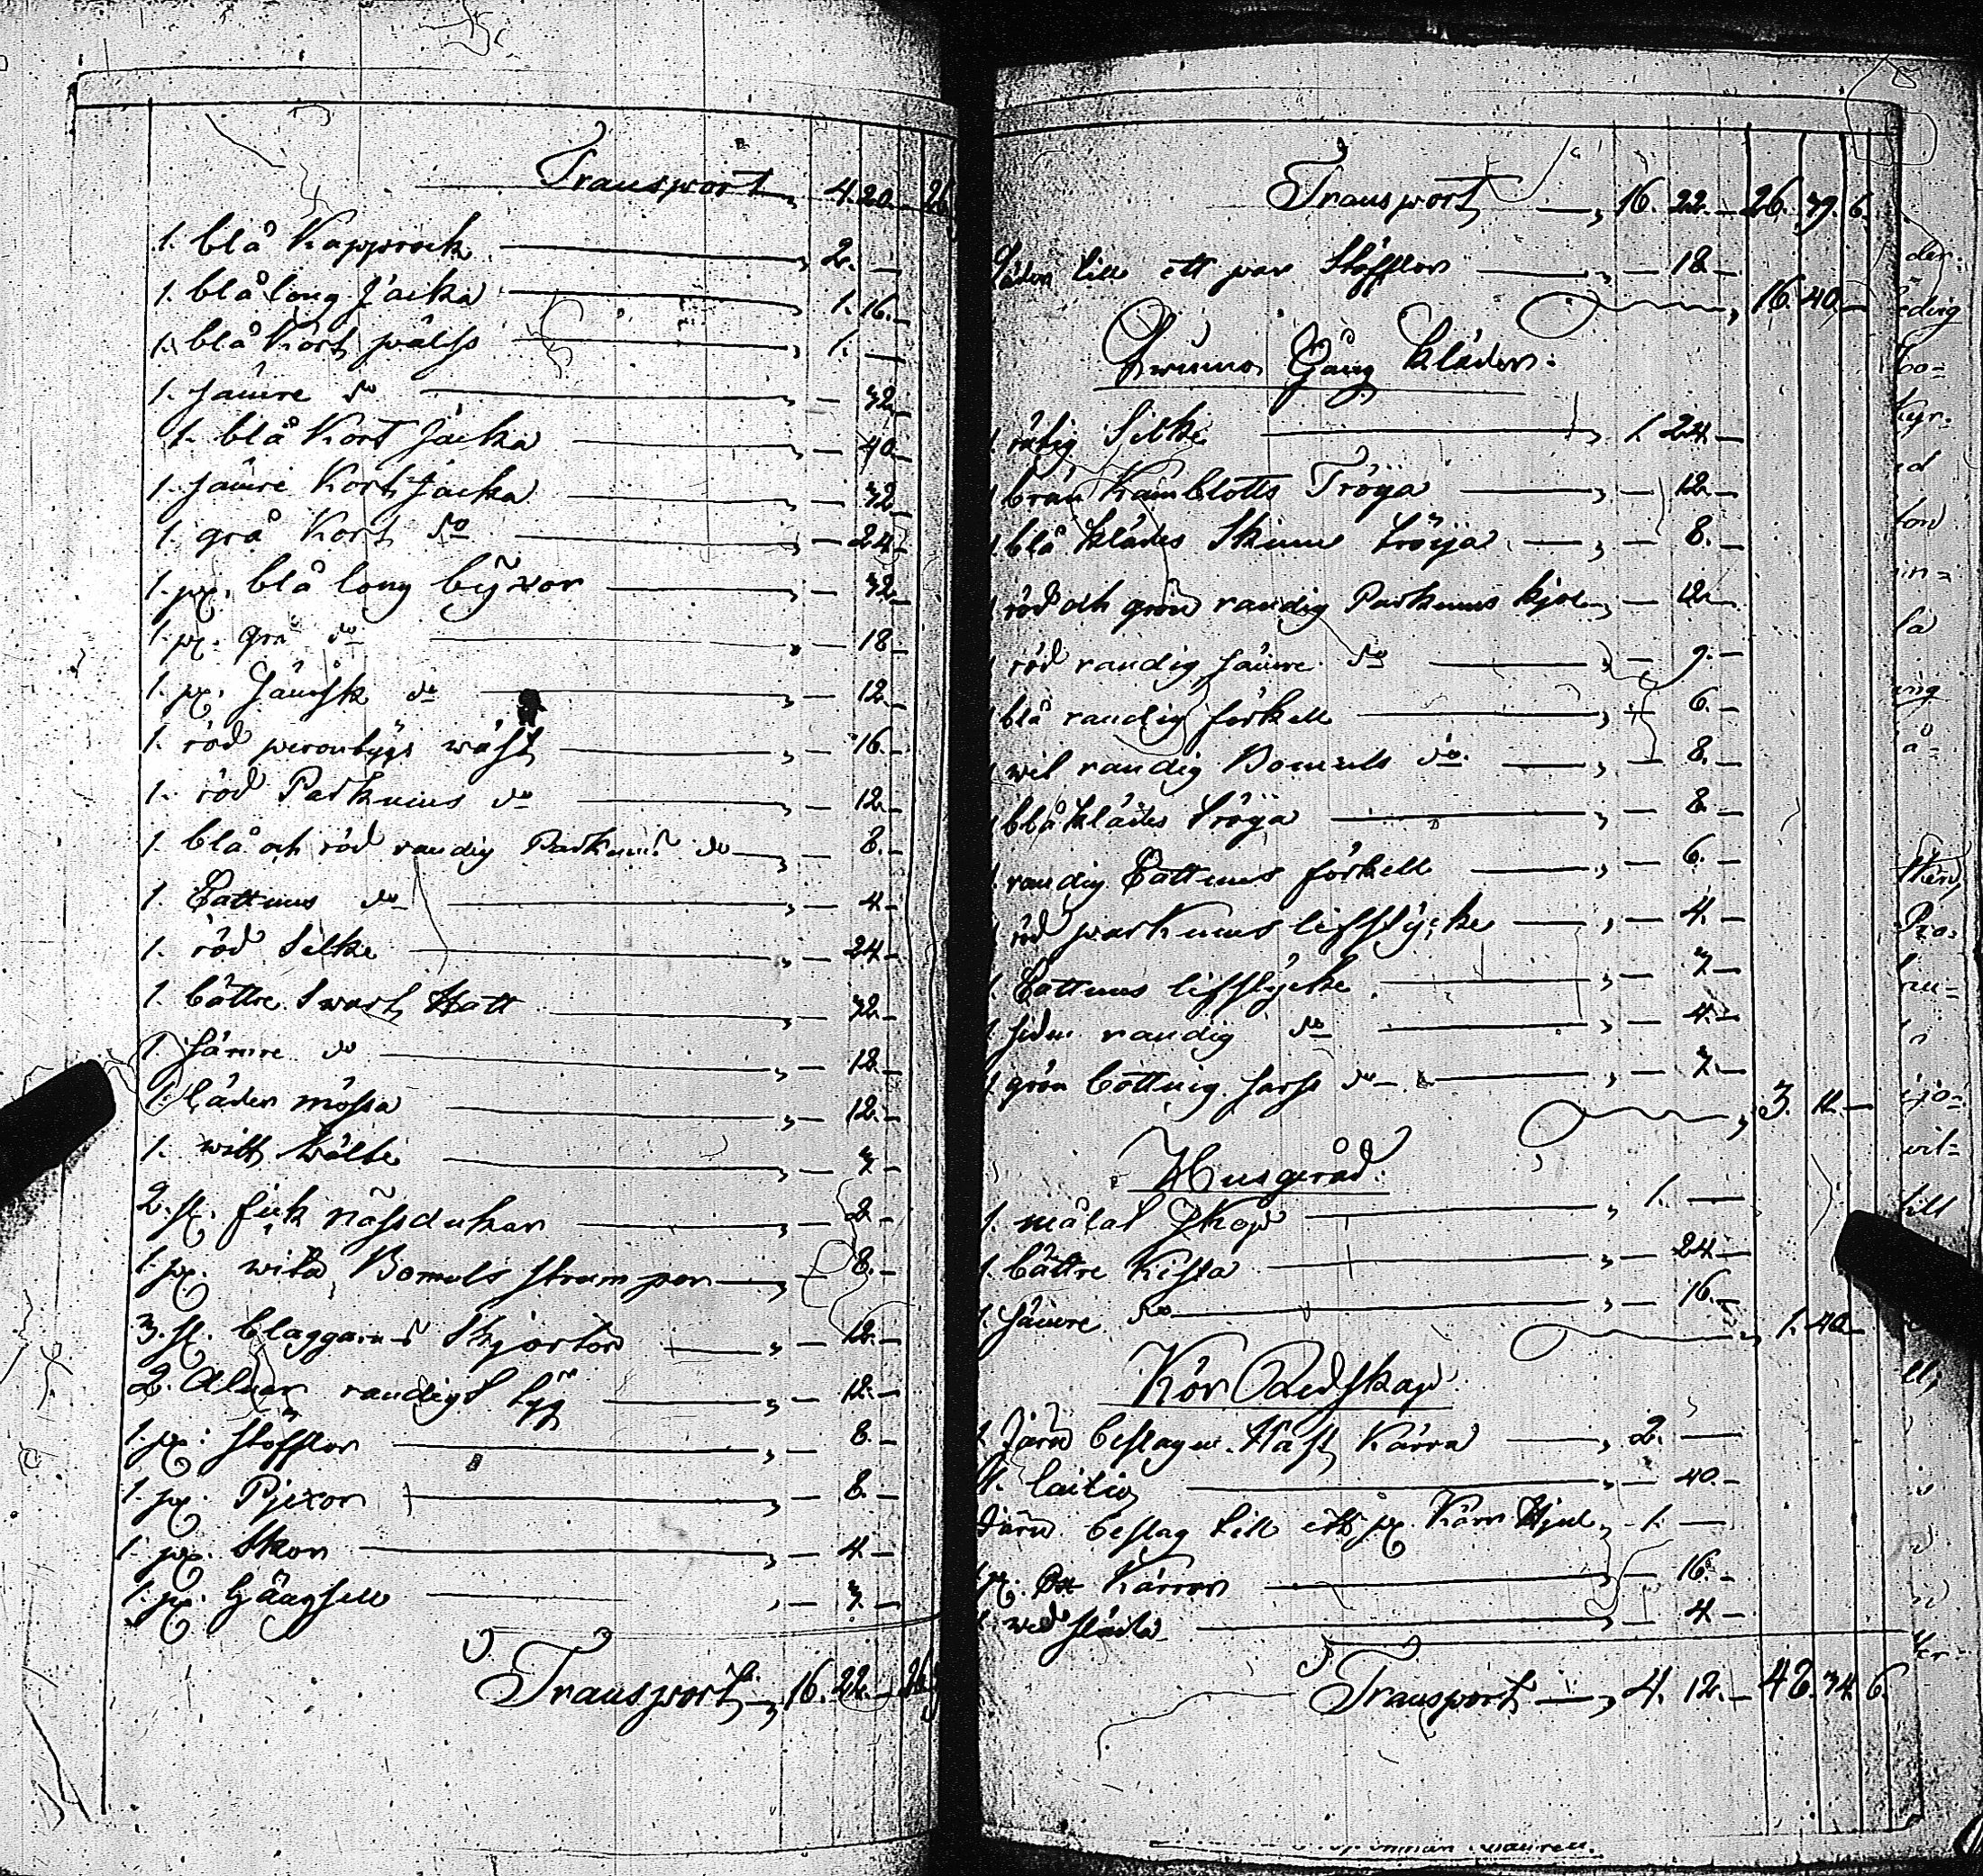 Transport 4. 20. — 26.
1. blå Kapprock — 2. —
1. blå long Jacka — 1. 16. —
1. blå Kort — 1. —
1. sämre do — 32 —
1. blå Kort Jacka — 40 —
1. sämre Kort Jacka — 32 —
1. grå Kort do — 24 —
1. pr. blå long byxor — 32 —
1. pr. grå do — 18 —
1. pr. do — 12 —
1. röd wäst — 16 —
1. röd Parkums do — 12 —
1. blå och röd randig Parkums do — 8. —
1. Cattuns do — 4 —
1. röd Silke — 24 —
1. bättre Swart Hatt — 32 —
1. sämre do — 18 —
1. Läder mössa — 12. —
1. witt — 3 —
2. st. fick näsdukar — 2 —
1. pr. wita Bomuls strumpor — 8. —
3. st. blaggarns Skjortor — 12. —
2. Alnar randigt tyg — 12. —
1. pr. stöfflor — 8. —
1. pr. Pjexor — 8. —
1. pr. Skor — 4 —
1. pr. — 3. —
Transport 16. 22. — 26.
Transport — 16. 22. — 26. 39. 6.
Läder till ett par Stöfflor — 18 —
16. 40. —
Gång kläder.
Silke — 1. 24 —
1 brun Kamblotts Tröya — 12 —
1 blå klädes Skinn tröya — 8. —
1 röd och grön randig Parkums kjol — 12 —
1 röd randig sämre do — 9. —
1 blå randig förkell — 6. —
1 wit randig Bomuls do. — 8. —
1 blå klädes tröya — 8 —
1. randig Cattuns förkell — 6. —
1 röd parkums lifstycke — 4. —
1. Cattuns lifstycke — 3 —
1. siden randig do — 4 —
1 grön bottnig sars do — 3 —
3. 11. —
Husgeråd.
1. målat Skop — 1. —
1. bättre Kista — 24 —
1. sämre do — 16. —
1. 40 —
Kör Redskap.
1 Järn beslagen Häst Kärra — 2. —
— 40. —
Järn beslag till ett pr. Kärr Hjul — 1. —
1 pr. Ox Kärror — 16. —
1. wed släda — 4 —
Transport — 4. 12. — 48. 34. 6.